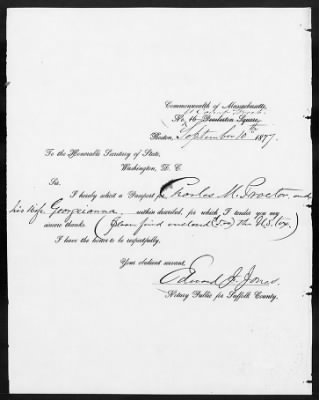 Commonwealth of Massachusetts,
No. 46 Pemberton Square,
Boston, September 10th 1877.
To the Honorable Secretary of State,
Washington, D. C.
Sir,
I hereby solicit a Passport for Charles M. Proctor, and
his wife Georgianna within described, for which I tender you my
sincere thanks. (Please find enclosed the U.S. tax.)
I have the honor to be respectfully,
Your obedient servant,
Edward J. Jones.
Notary Public for Suffolk County.